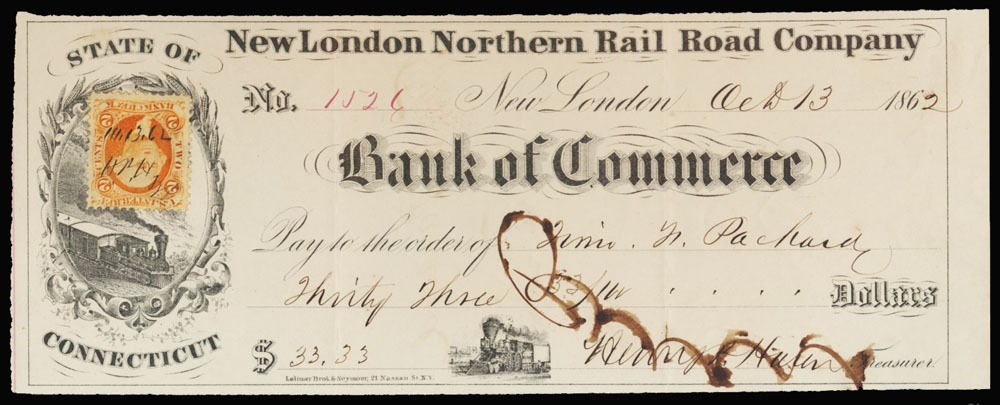 STATE OF
New London Northern Rail Road Company
No. 1526 New London Oct 13 1862
BANK CHECK
2 CENTS TWO 2
U.S. INTER. REV.
10.13.62
Bank of Commerce
Pay to the order of Packard
Thirty Three 33/100 . . . . . Dollars
CONNECTICUT
$ 33.33 Treasurer.
Latimer Bros. & Seymour, 21 Nassau St. N.Y.